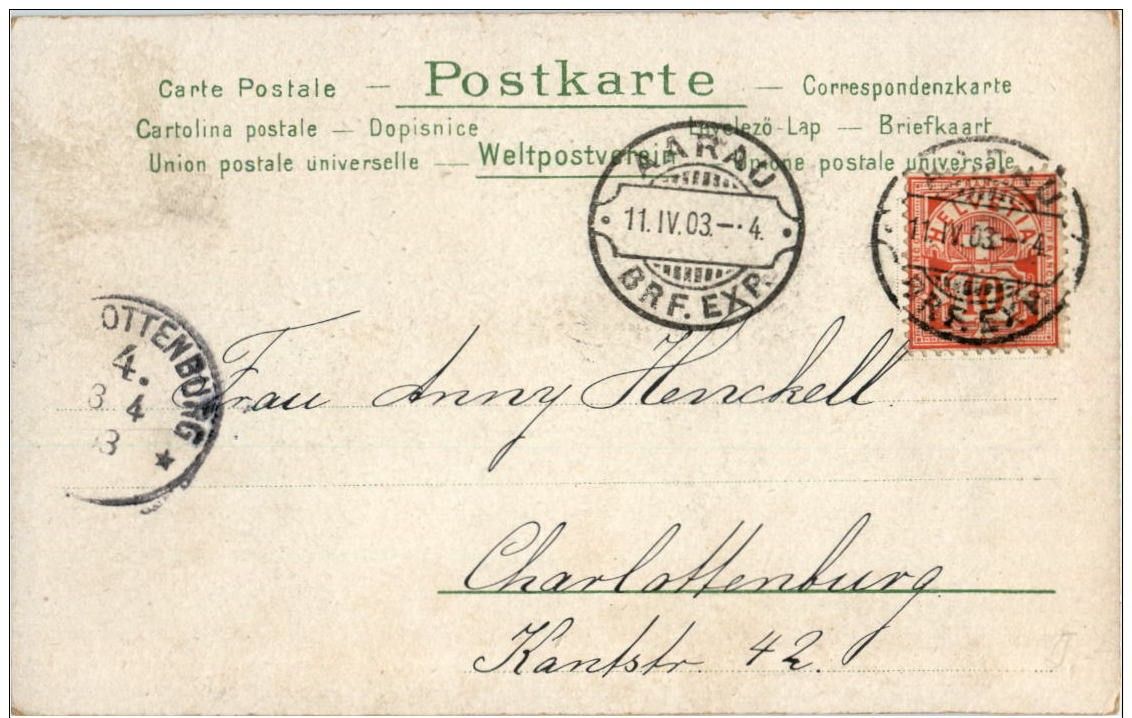 Postkarte
Carte Postale — — Correspondenzkarte
Cartolina postale — Dopisnice Levelező-Lap — Briefkaart
Union postale universelle — Weltpostverein Unione postale universale
AARAU
11.IV.03.—·4.
BRF. EXP.
AARAU
11.IV.03.—·4.
BRF. EXP.
HELVETIA
10
OTTENBURG
4.
3 4
3
Frau Anny Henckell.
Charlottenburg
Kantstr. 42.